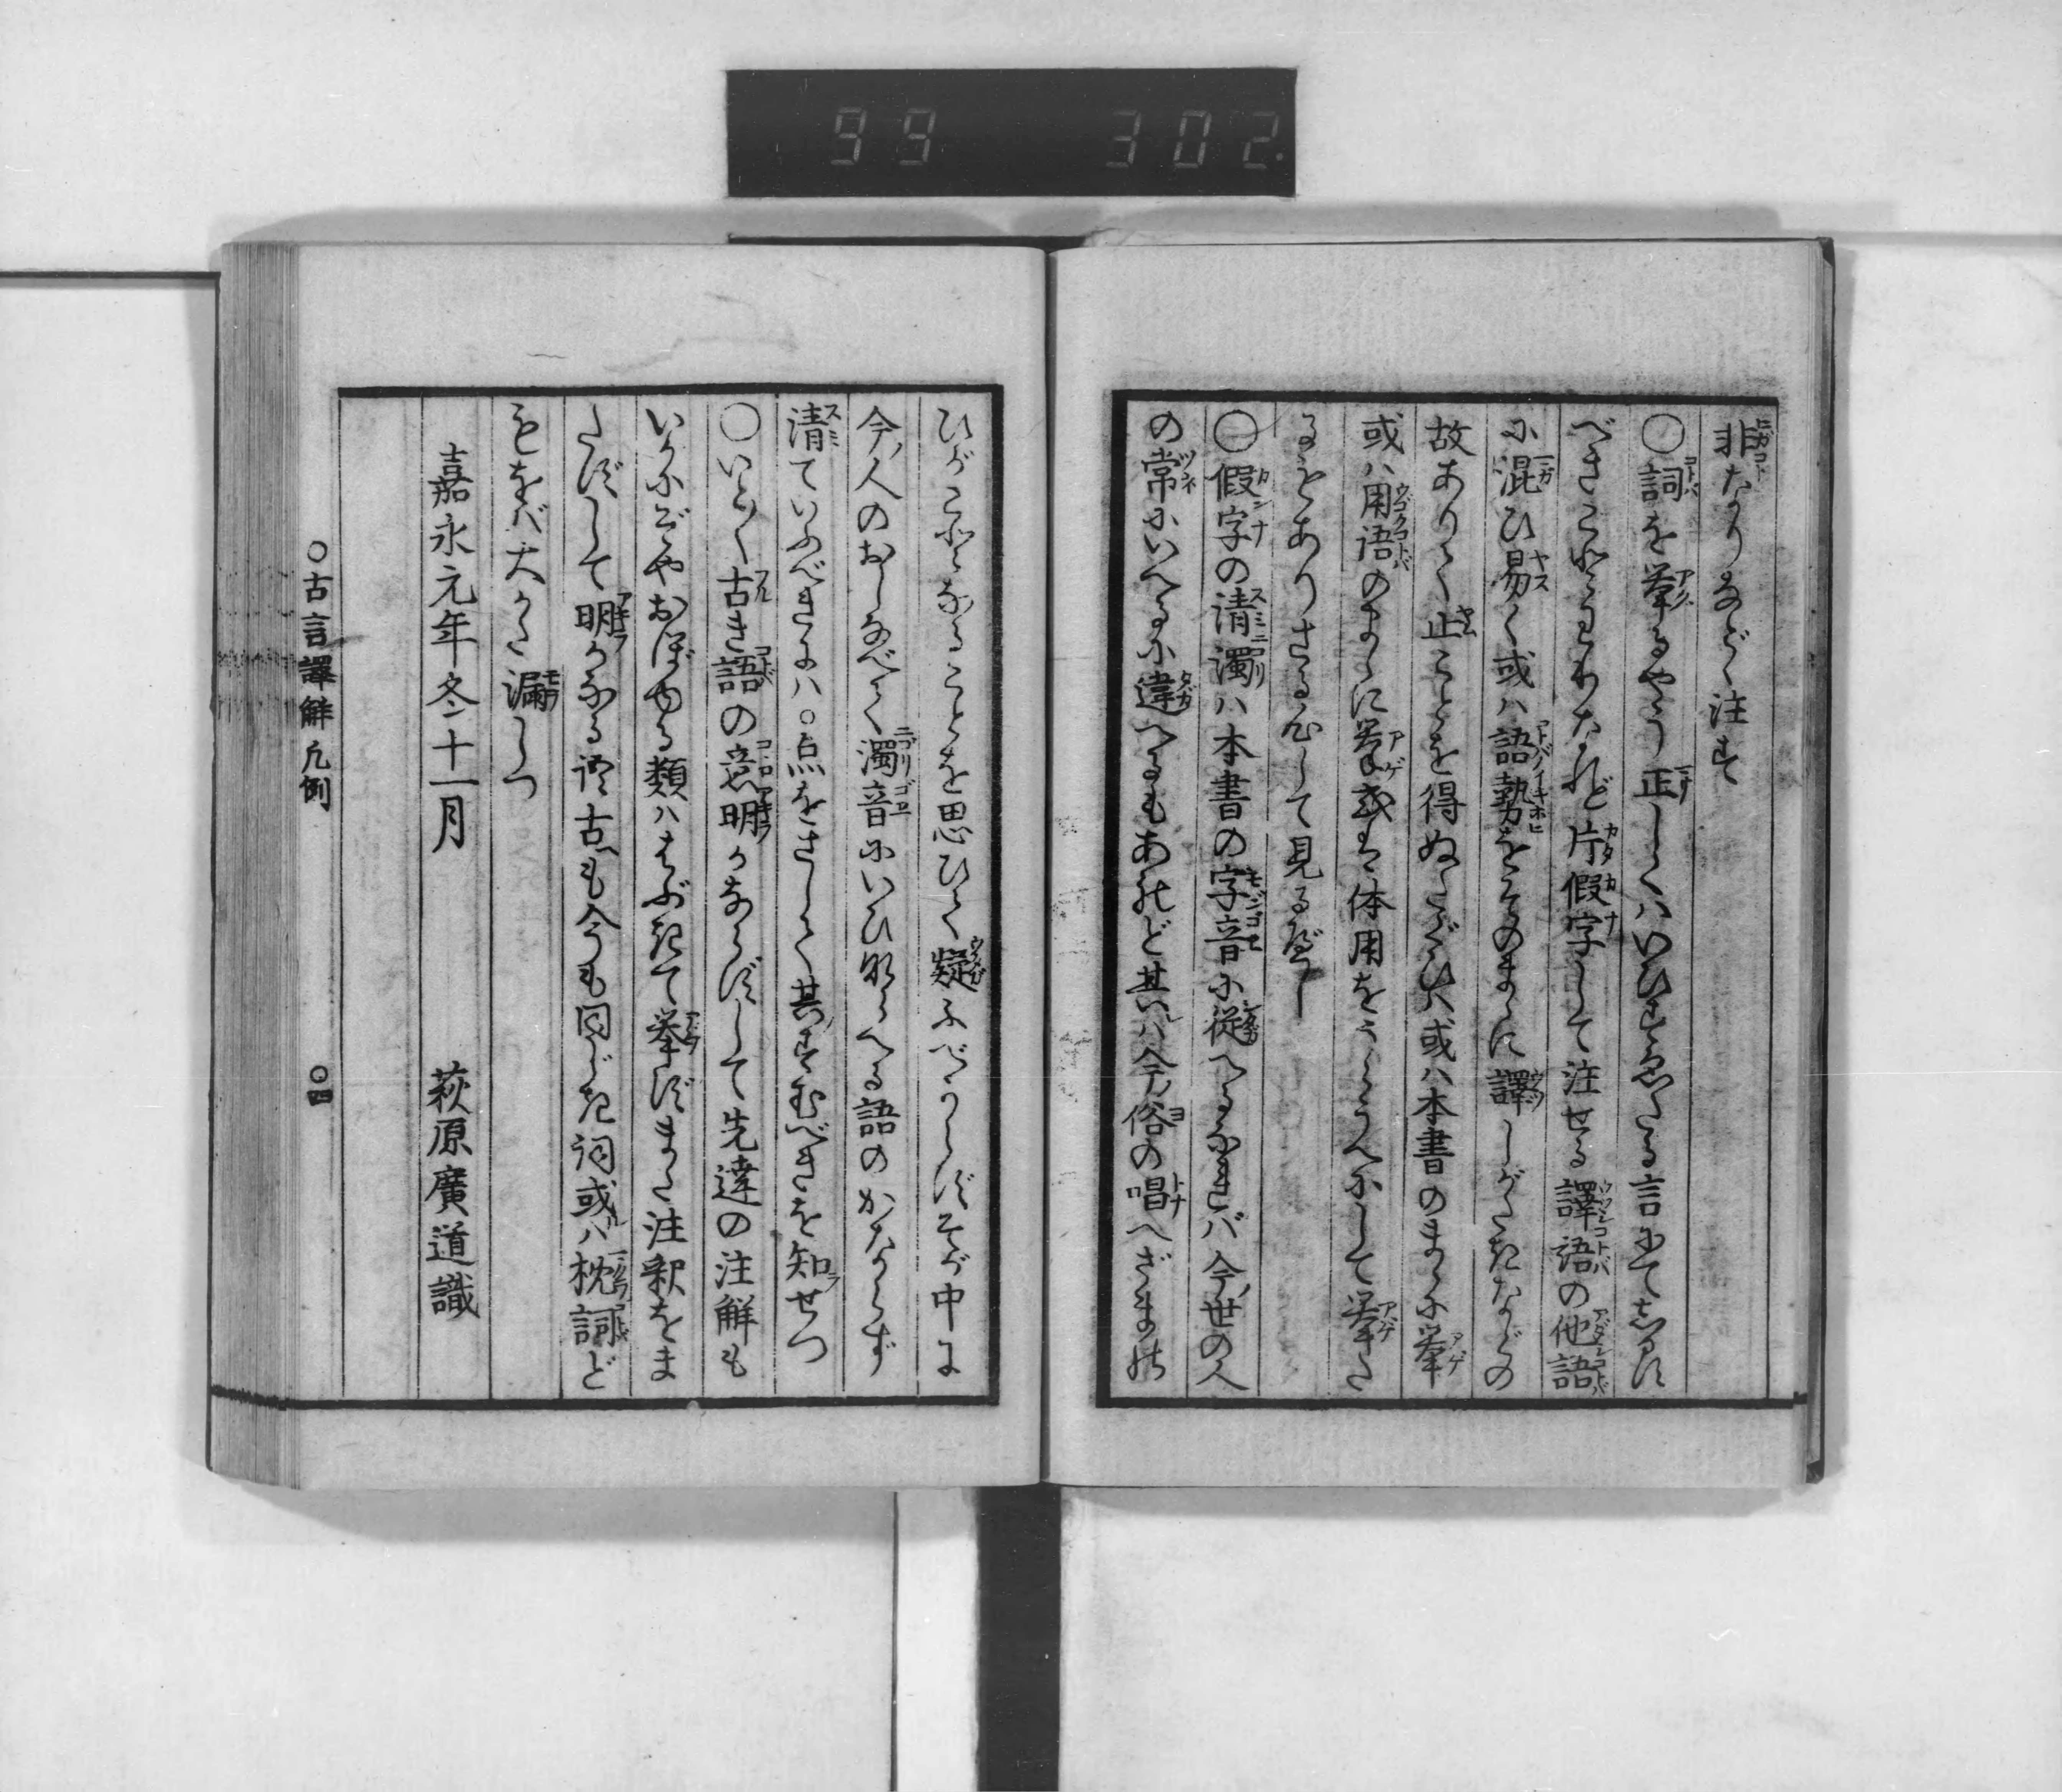 99 302.
非なりなどゝ注す
○詞を挙るやう正しくはいひすゑたる言にて出すに
べきことわりなれど片假字して注せる譯語の他語
に混ひ易く或ハ語勢をそのまゝに譯しがたきなどの
故ありて止ことを得ぬたぐひハ或ハ本書のまゝに挙
或ハ用語のまゝに挙或は体用をうしろうへにして挙た
るもありさる心して見るべし
○假字の清濁ハ本書の字音に従へるなれバ今ノ世の人
の常にいへるに違へるもあれど其ハ今ノ俗の唱へざまの
ひがことなることを思ひて疑ふべからずそが中に
今ノ人のおしなべて濁音にいひならへる語のかならず
清ていふべきにハ○点をさして其すむべきを知せつ
○いとゝ古き語の意明かならずして先達の注解も
いかにぞやおぼゆる類ハはぶきて挙ずまた注釈をま
たずして明かなる語古も今も同じき詞或ハ枕詞ど
もをバ大かた漏しつ
嘉永元年冬十一月
萩原廣道識
○古言譯解凡例
○四